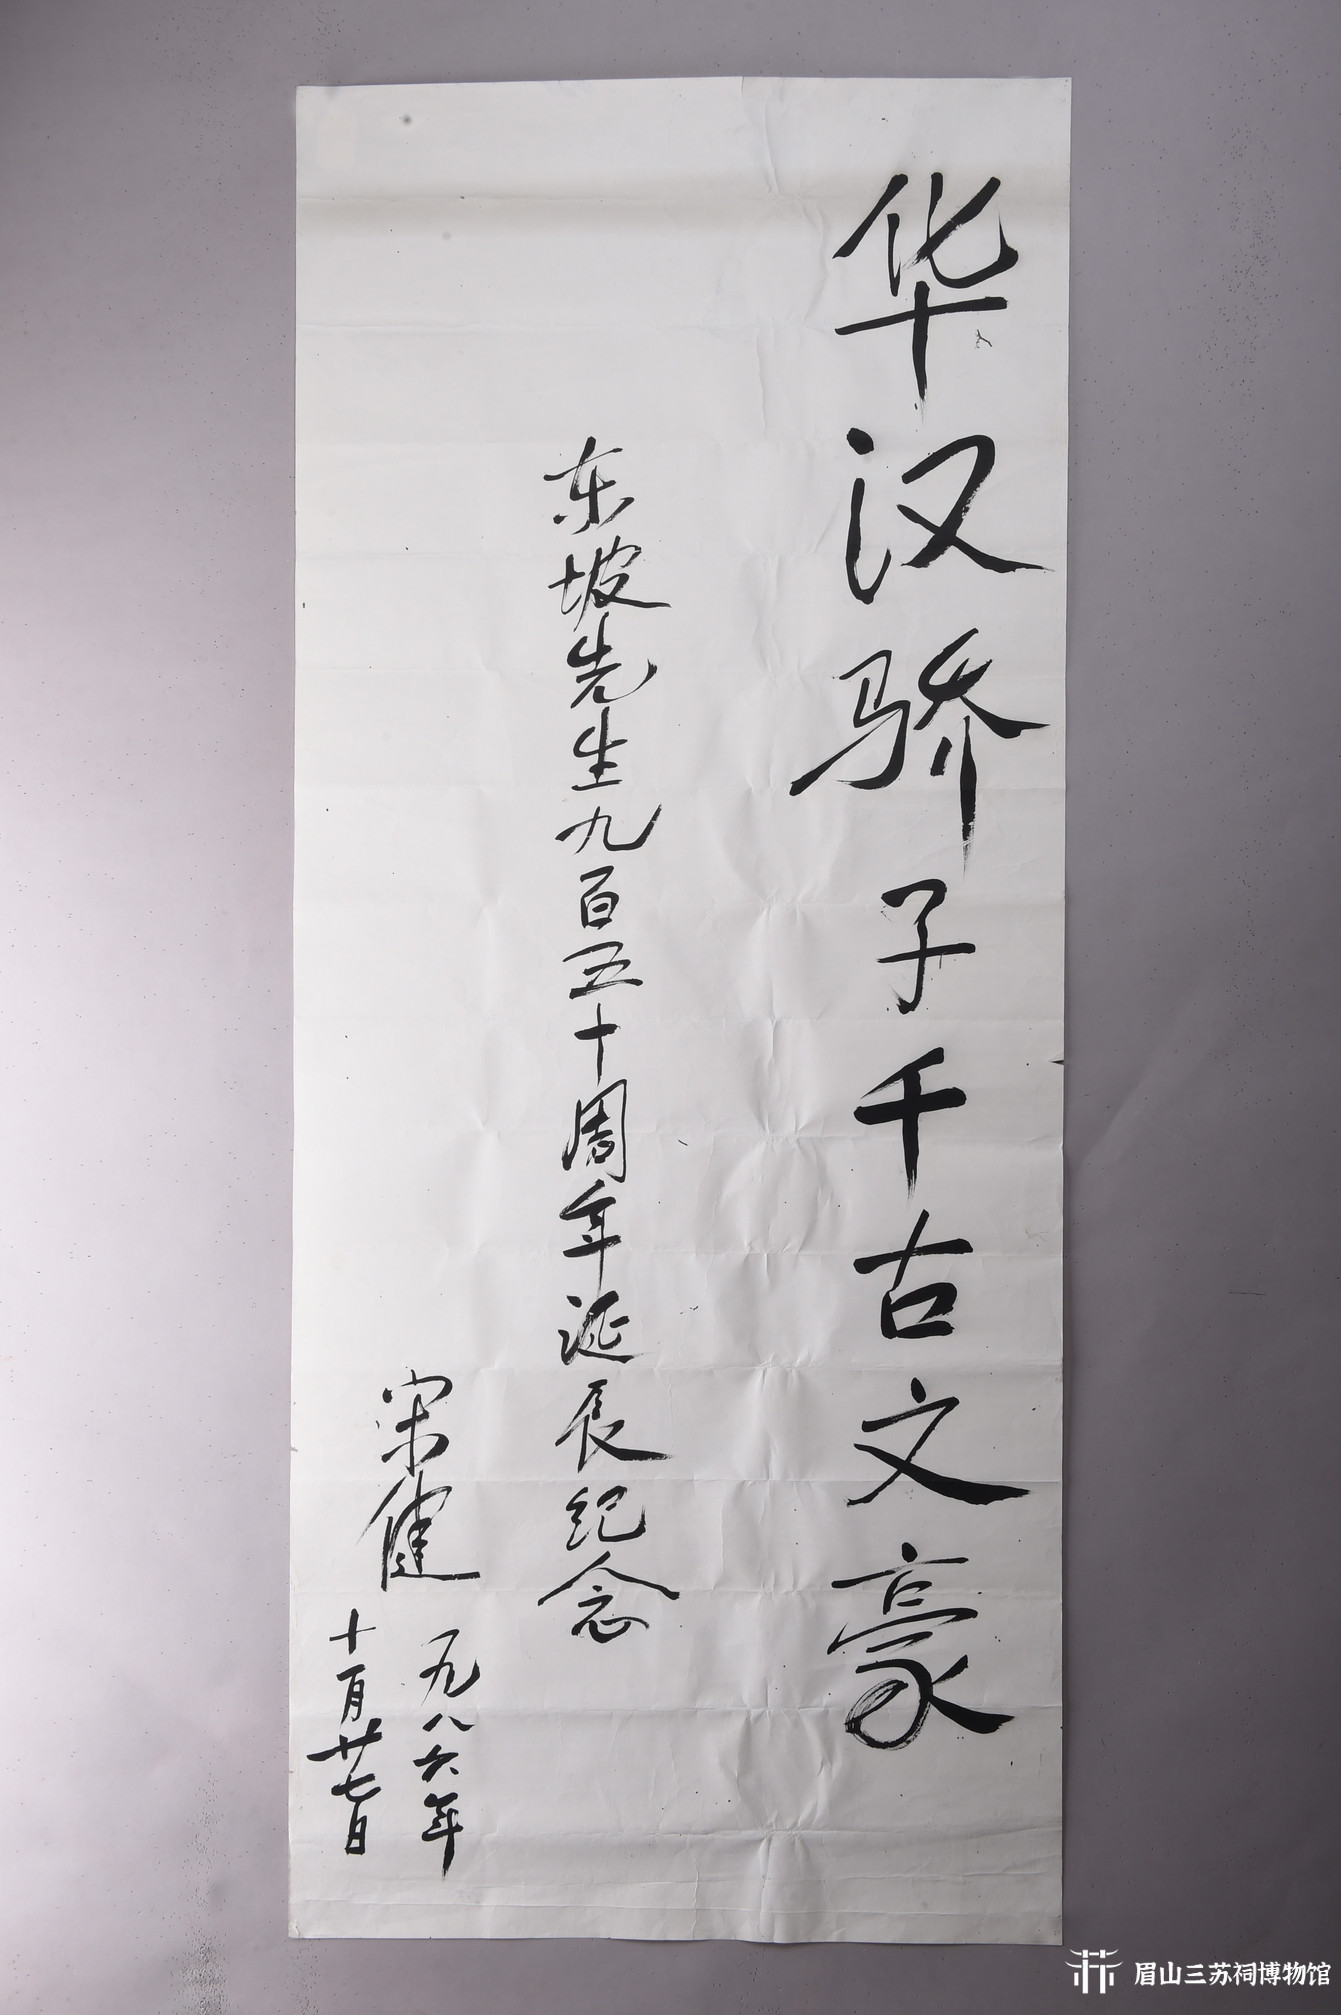 华汉骄子千古文豪
东坡先生九百五十周年诞辰纪念
宋健
一九八六年
十月廿七日
眉山三苏祠博物馆